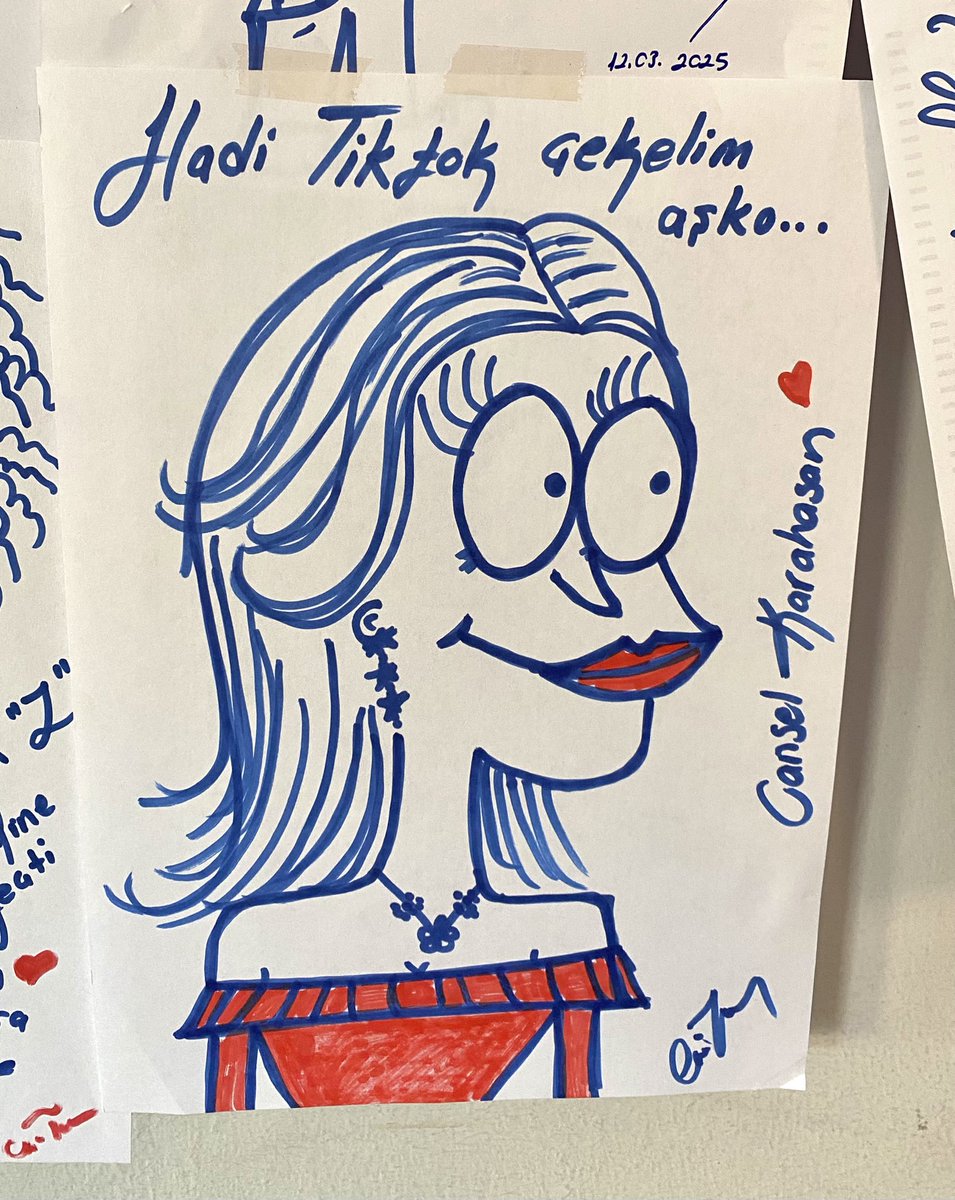 12.03. 2025
Hadi Tiktok çekelim
aşko...
Cansel Karahasan
"Z"